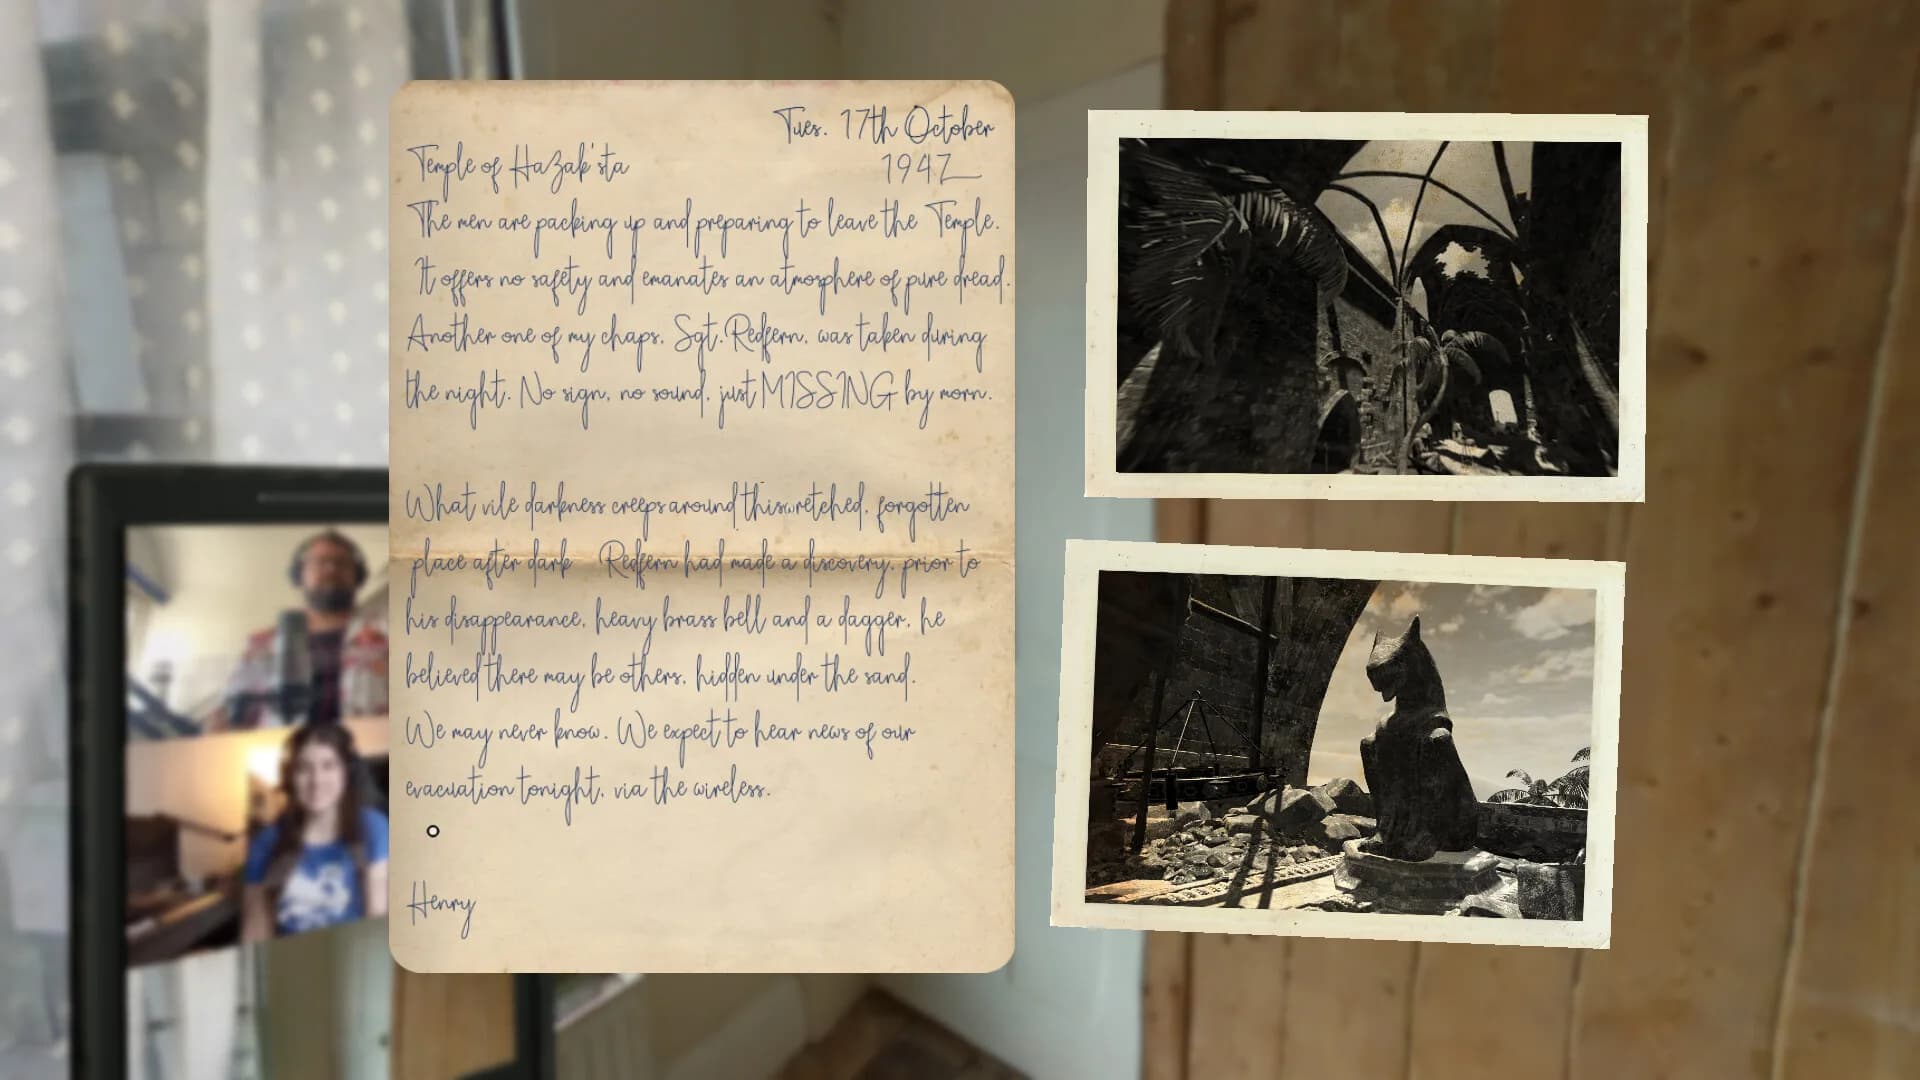 Tues. 17th October
Temple of HaZak'sta 1942
The men are packing up and preparing to leave the Temple.
It offers no safety and emanates an atmosphere of pure dread.
Another one of my chaps, Sgt. Redfern, was taken during
the night. No sign, no sound, just MISSING by morn.
What vile darkness creeps around this wretched, forgotten
place after dark Redfern had made a discovery, prior to
his disappearance, heavy brass bell and a dagger, he
believed there may be others, hidden under the sand.
We may never know. We expect to hear news of our
evacuation tonight, via the wireless.
Henry